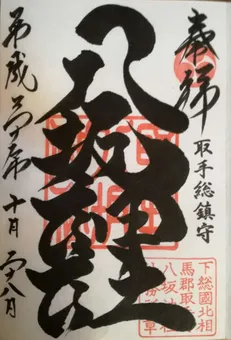 奉拝
取手総鎮守
八坂神社
平成三十年十月二十八日
下総國北相
馬郡取手
八坂神社